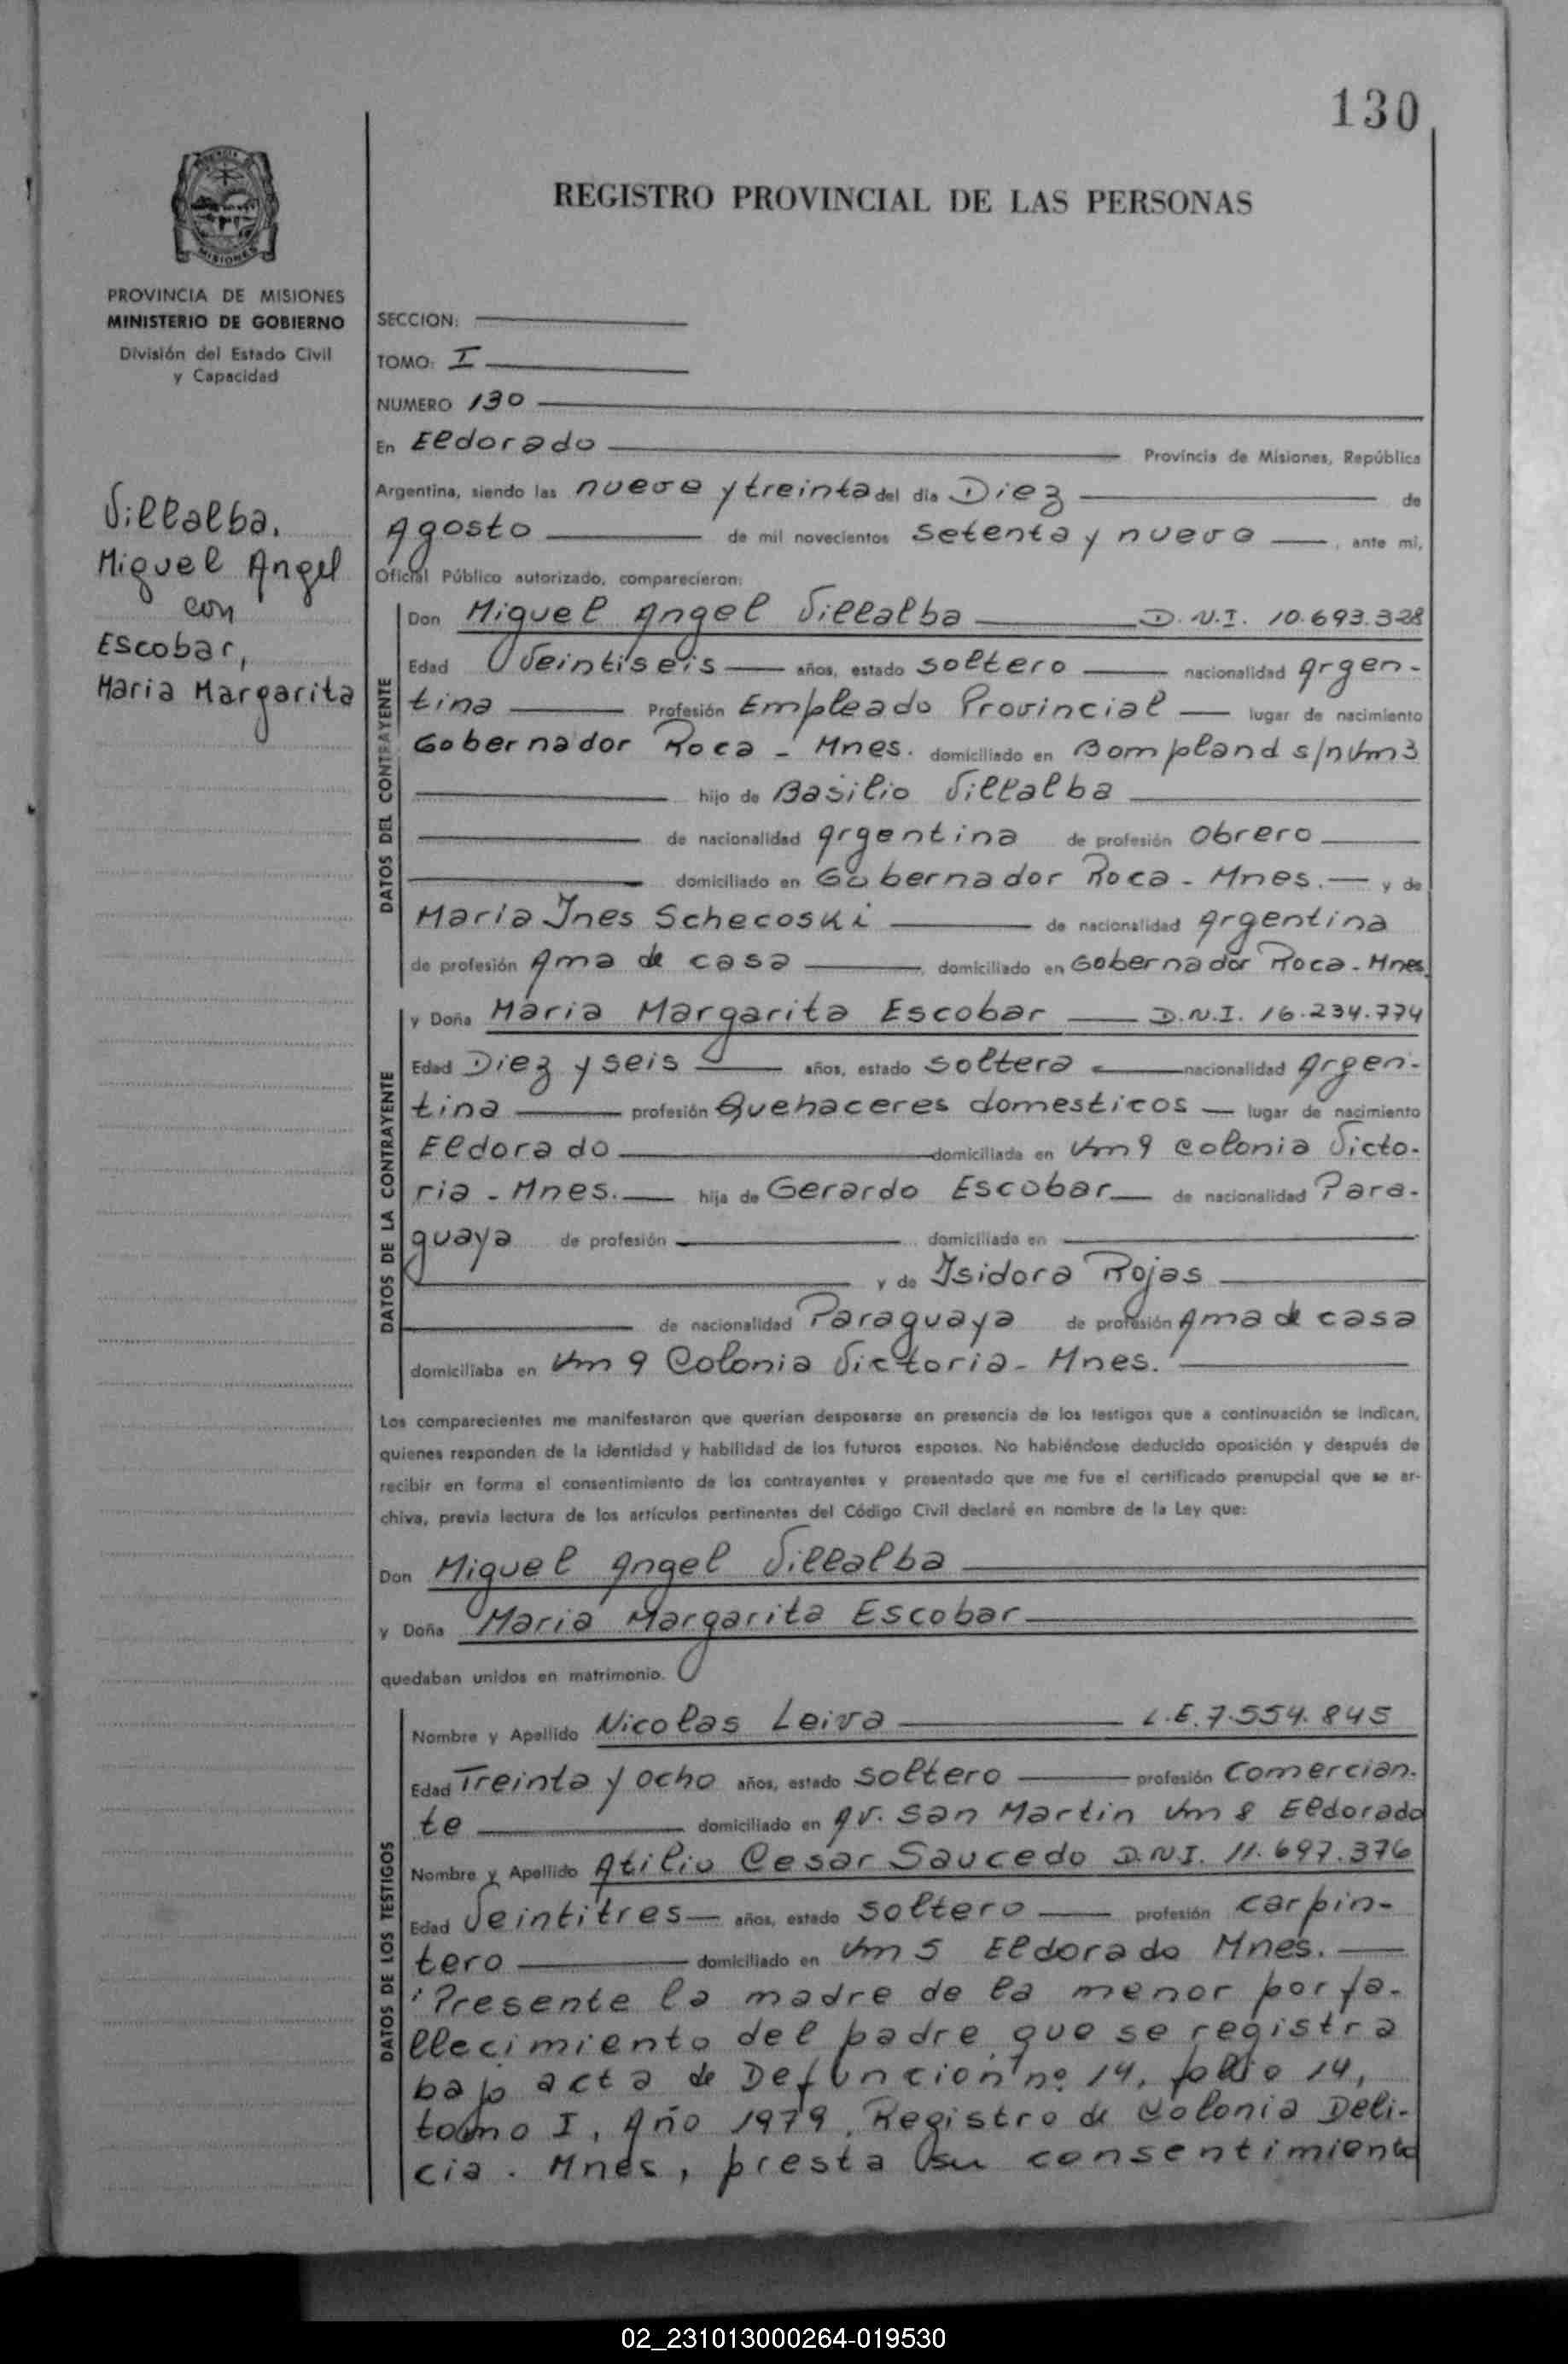 130
REGISTRO PROVINCIAL DE LAS PERSONAS
PROVINCIA DE MISIONES
MINISTERIO DE GOBIERNO
División del Estado Civil
y Capacidad
Villalba,
Miguel Angel
con
Escobar,
Maria Margarita
SECCION:
TOMO: I
NUMERO 130
En Eldorado Provincia de Misiones, República
Argentina, siendo las nueve y treinta del día Diez de
Agosto de mil novecientos setenta y nueve, ante mi,
Oficial Público autorizado, comparecieron:
DATOS DEL CONTRAYENTE
Don Miguel Angel Villalba D.N.I. 10.693.328
Edad Veintiseis años, estado soltero nacionalidad Argen-
tina Profesión Empleado Provincial lugar de nacimiento
Gobernador Roca - Mnes. domiciliado en Bompland s/n Km3
hijo de Basilio Villalba
de nacionalidad Argentina de profesión Obrero
domiciliado en Gobernador Roca - Mnes. y de
Maria Ines Schecoski de nacionalidad Argentina
de profesión Ama de casa, domiciliado en Gobernador Roca - Mnes.
DATOS DE LA CONTRAYENTE
y Doña Maria Margarita Escobar D.N.I. 16.234.774
Edad Diez y seis años, estado soltera nacionalidad Argen-
tina profesión Quehaceres domesticos lugar de nacimiento
Eldorado domiciliada en Km 9 Colonia Victo-
ria - Mnes. hija de Gerardo Escobar de nacionalidad Para-
guaya de profesión domiciliada en
y de Isidora Rojas
de nacionalidad Paraguaya de profesión Ama de casa
domiciliaba en Km 9 Colonia Victoria - Mnes.
Los comparecientes me manifestaron que querían desposarse en presencia de los testigos que a continuación se indican,
quienes responden de la identidad y habilidad de los futuros esposos. No habiéndose deducido oposición y después de
recibir en forma el consentimiento de los contrayentes y presentado que me fue el certificado prenupcial que se ar-
chiva, previa lectura de los artículos pertinentes del Código Civil declaré en nombre de la Ley que:
Don Miguel Angel Villalba
y Doña Maria Margarita Escobar
quedaban unidos en matrimonio.
DATOS DE LOS TESTIGOS
Nombre y Apellido Nicolas Leiva L.E. 7.554.845
Edad Treinta y ocho años, estado soltero profesión Comercian-
te domiciliado en Av. San Martin Km 8 Eldorado
Nombre y Apellido Atilio Cesar Saucedo D.N.I. 11.697.376
Edad Veintitres años, estado soltero profesión carpin-
tero domiciliado en Km 5 Eldorado Mnes.
Presente la madre de la menor por fa-
llecimiento del padre que se registra
bajo acta de Defuncion nº 14, folio 14,
tomo I, Año 1979, Registro de Colonia Deli-
cia. Mnes, presta su consentimiento
02_231013000264-019530